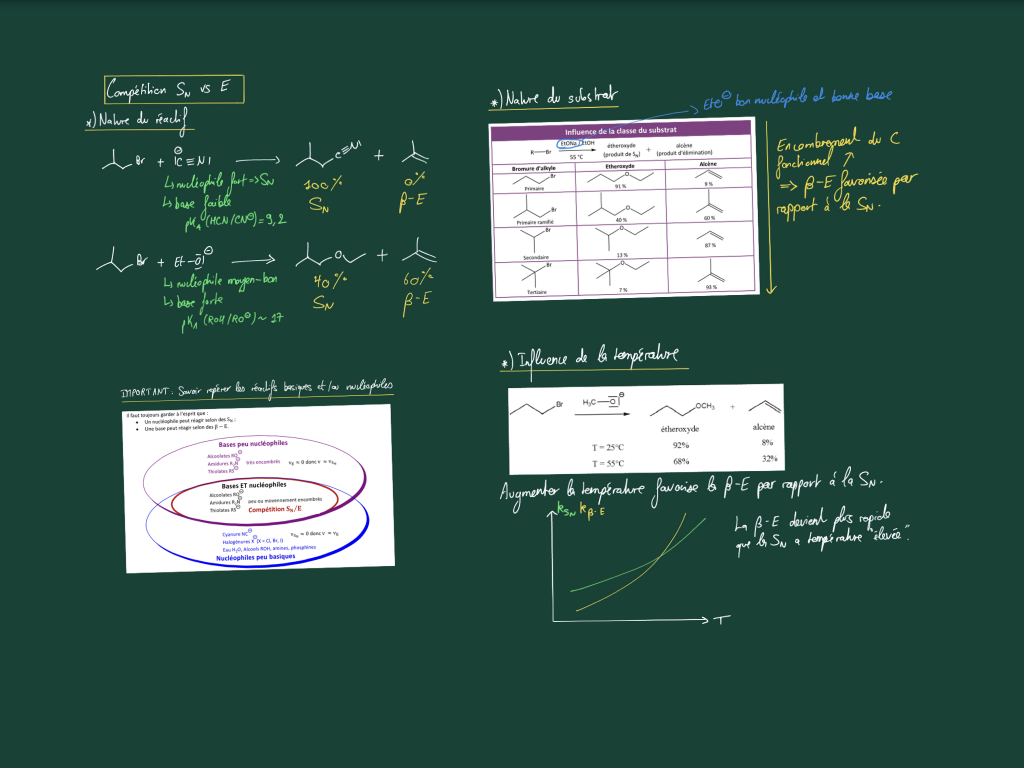 Compétition SN vs E
*) Nature du réactif
Br + |C≡N| ⊖ → C≡N| +
↳ nucléophile fort => SN
↳ base faible
pKA (HCN/CN⊖) = 9,2
100%
SN
0%
β-E
Br + Et-O| ⊖ → O +
↳ nucléophile moyen-bon
↳ base forte
pKA (ROH/RO⊖) ~ 17
40%
SN
60%
β-E
IMPORTANT : Savoir repérer les réactifs basiques et/ou nucléophiles
Il faut toujours garder à l'esprit que :
• Un nucléophile peut réagir selon des SN ;
• Une base peut réagir selon des β – E.
Bases peu nucléophiles
Alcoolates RO⊖
Amidures R2N⊖ très encombrés
Thiolates RS⊖
vE ≈ 0 donc v = vSN
Bases ET nucléophiles
Alcoolates RO⊖
Amidures R2N⊖ peu ou moyennement encombrés
Thiolates RS⊖ Compétition SN/E
Cyanure NC⊖
Halogénures X⊖ (X = Cl, Br, I)
Eau H2O, Alcools ROH, amines, phosphines
vSN ≈ 0 donc v = vE
Nucléophiles peu basiques
*) Nature du substrat
→ EtO⊖ bon nucléophile et bonne base
Influence de la classe du substrat
R—Br EtONa / EtOH 55 °C étheroxyde (produit de SN) + alcène (produit d'élimination)
Bromure d'alkyle Etheroxyde Alcène
Br O
Primaire 91 % 9 %
Br O
Primaire ramifié 40 % 60 %
Br O
Secondaire 13 % 87 %
Br O
Tertiaire 7 % 93 %
Encombrement du C
fonctionnel ↗
=> β-E favorisée par
rapport à la SN.
*) Influence de la température
Br H3C—O| ⊖ OCH3 +
étheroxyde alcène
T = 25°C 92% 8%
T = 55°C 68% 32%
Augmenter la température favorise la β-E par rapport à la SN.
kSN kβ-E
T
La β-E devient plus rapide
que la SN a température "élevée".